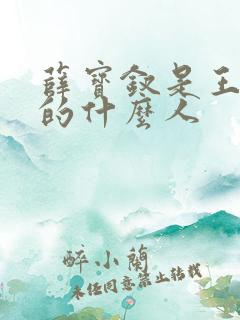 薛寶釵是王
的什麼人
醉小蘭
未经同意禁止转载